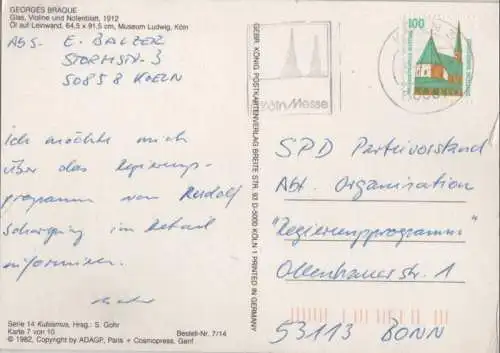 GEORGES BRAQUE
Glas, Violine und Notenblatt, 1912
Öl auf Leinwand, 64,5 x 91,5 cm, Museum Ludwig, Köln
ABS. - E. BALZER
STORMSTR. 3
50858 KOELN
Ich möchte mich
über das Regierungs-
programm von Rudolf
Scharping im Detail
informieren.
Serie 14 Kubismus, Hrsg.: S. Gohr
Karte 7 von 10
Bestell-Nr. 7/14
© 1982, Copyright by ADAGP, Paris + Cosmopress, Genf
GEBR. KÖNIG POSTKARTENVERLAG BREITE STR. 93 D-5000 KÖLN 1 PRINTED IN GERMANY
KölnMesse
100
SPD Parteivorstand
Abt. Organisation
"Regierungsprogramm"
Ollenhauerstr. 1
53113 BONN